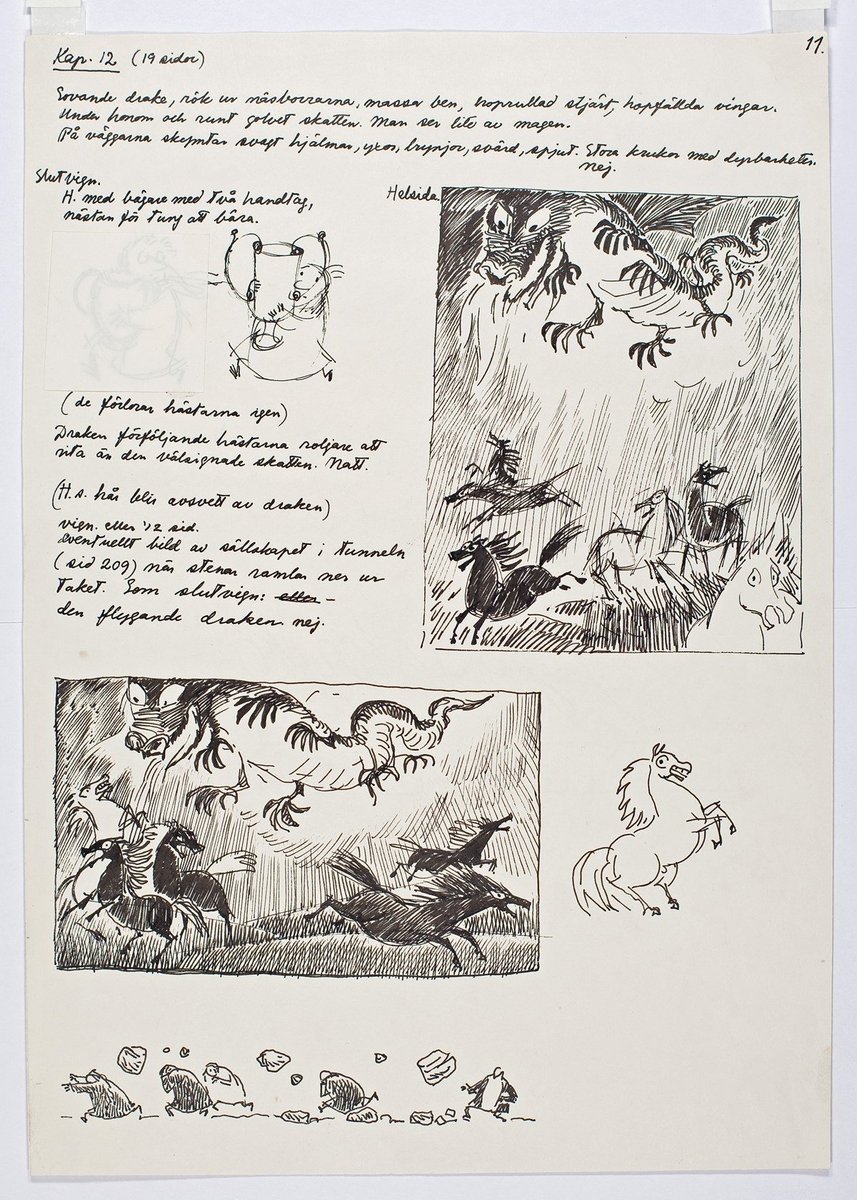 11.
Kap. 12 (19 sidor)
Sovande drake, rök ur näsborrarna, massa ben, hoprullad stjärt, hopfällda vingar.
Under honom och runt golvet skatten. Man ser lite av magen.
På väggarna skymtar svagt hjälmar, yxor, brynjor, svärd, spjut. Stora krukor med dyrbarheter.
Nej.
Slutvign.
H. med bägare med två handtag,
nästan för tung att bära.
Helsida.
(de förlorar hästarna igen)
Draken förföljande hästarna roligare att
rita än den välsignade skatten. Natt.
(H.s. hår blir avsvett av draken)
vign. eller 1/2 sid.
Eventuellt bild av sällskapet i tunneln
(sid 209) när stenar ramlar ner ur
taket. Som slutvign: eller –
den flygande draken nej.